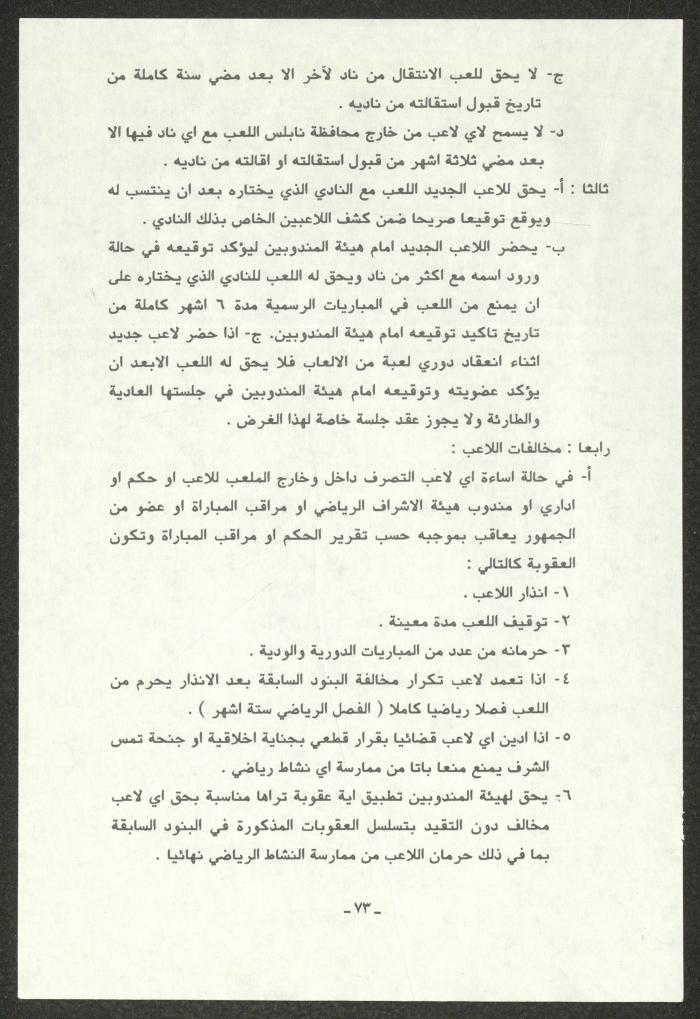 ج- لا يحق للعب الانتقال من ناد لآخر الا بعد مضي سنة كاملة من
تاريخ قبول استقالته من ناديه .
د- لا يسمح لاي لاعب من خارج محافظة نابلس اللعب مع اي ناد فيها الا
بعد مضي ثلاثة اشهر من قبول استقالته او اقالته من ناديه .
ثالثا : أ- يحق للاعب الجديد اللعب مع النادي الذي يختاره بعد ان ينتسب له
ويوقع توقيعا صريحا ضمن كشف اللاعبين الخاص بذلك النادي .
ب- يحضر اللاعب الجديد امام هيئة المندوبين ليؤكد توقيعه في حالة
ورود اسمه مع اكثر من ناد ويحق له اللعب للنادي الذي يختاره على
ان يمنع من اللعب في المباريات الرسمية مدة ٦ اشهر كاملة من
تاريخ تاكيد توقيعه امام هيئة المندوبين. ج- اذا حضر لاعب جديد
اثناء انعقاد دوري لعبة من الالعاب فلا يحق له اللعب الابعد ان
يؤكد عضويته وتوقيعه امام هيئة المندوبين في جلستها العادية
والطارئة ولا يجوز عقد جلسة خاصة لهذا الغرض .
رابعا : مخالفات اللاعب :
أ- في حالة اساءة اي لاعب التصرف داخل وخارج الملعب للاعب او حكم او
اداري او مندوب هيئة الاشراف الرياضي او مراقب المباراة او عضو من
الجمهور يعاقب بموجبه حسب تقرير الحكم او مراقب المباراة وتكون
العقوبة كالتالي :
١- انذار اللاعب .
٢- توقيف اللعب مدة معينة .
٣- حرمانه من عدد من المباريات الدورية والودية .
٤- اذا تعمد لاعب تكرار مخالفة البنود السابقة بعد الانذار يحرم من
اللعب فصلا رياضيا كاملا ( الفصل الرياضي ستة اشهر ) .
٥- اذا ادين اي لاعب قضائيا بقرار قطعي بجناية اخلاقية او جنحة تمس
الشرف يمنع منعا باتا من ممارسة اي نشاط رياضي .
٦- يحق لهيئة المندوبين تطبيق اية عقوبة تراها مناسبة بحق اي لاعب
مخالف دون التقيد بتسلسل العقوبات المذكورة في البنود السابقة
بما في ذلك حرمان اللاعب من ممارسة النشاط الرياضي نهائيا .
ـ ٧٣ ـ